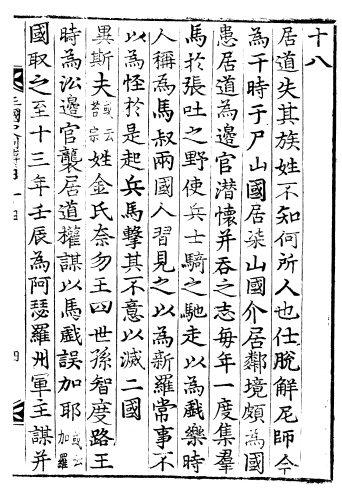 十八
居道失其族姓不知何所人也仕脫解尼師今
為干時于尸山國居柒山國介居鄰境頗為國
患居道為邊官潜懷并吞之志每年一度集羣
馬於張吐之野使兵士騎之馳走以為戱樂時
人稱為馬叔兩國人習見之以為新羅常事不
以為怪於是起兵馬擊其不意以滅二國
異斯夫或云苔宗姓金氏奈勿王四世孫智度路王
時為沿邊官襲居道權謀以馬戱誤加耶或云加羅
國取之至十三年壬辰為阿瑟羅州軍主謀并
四